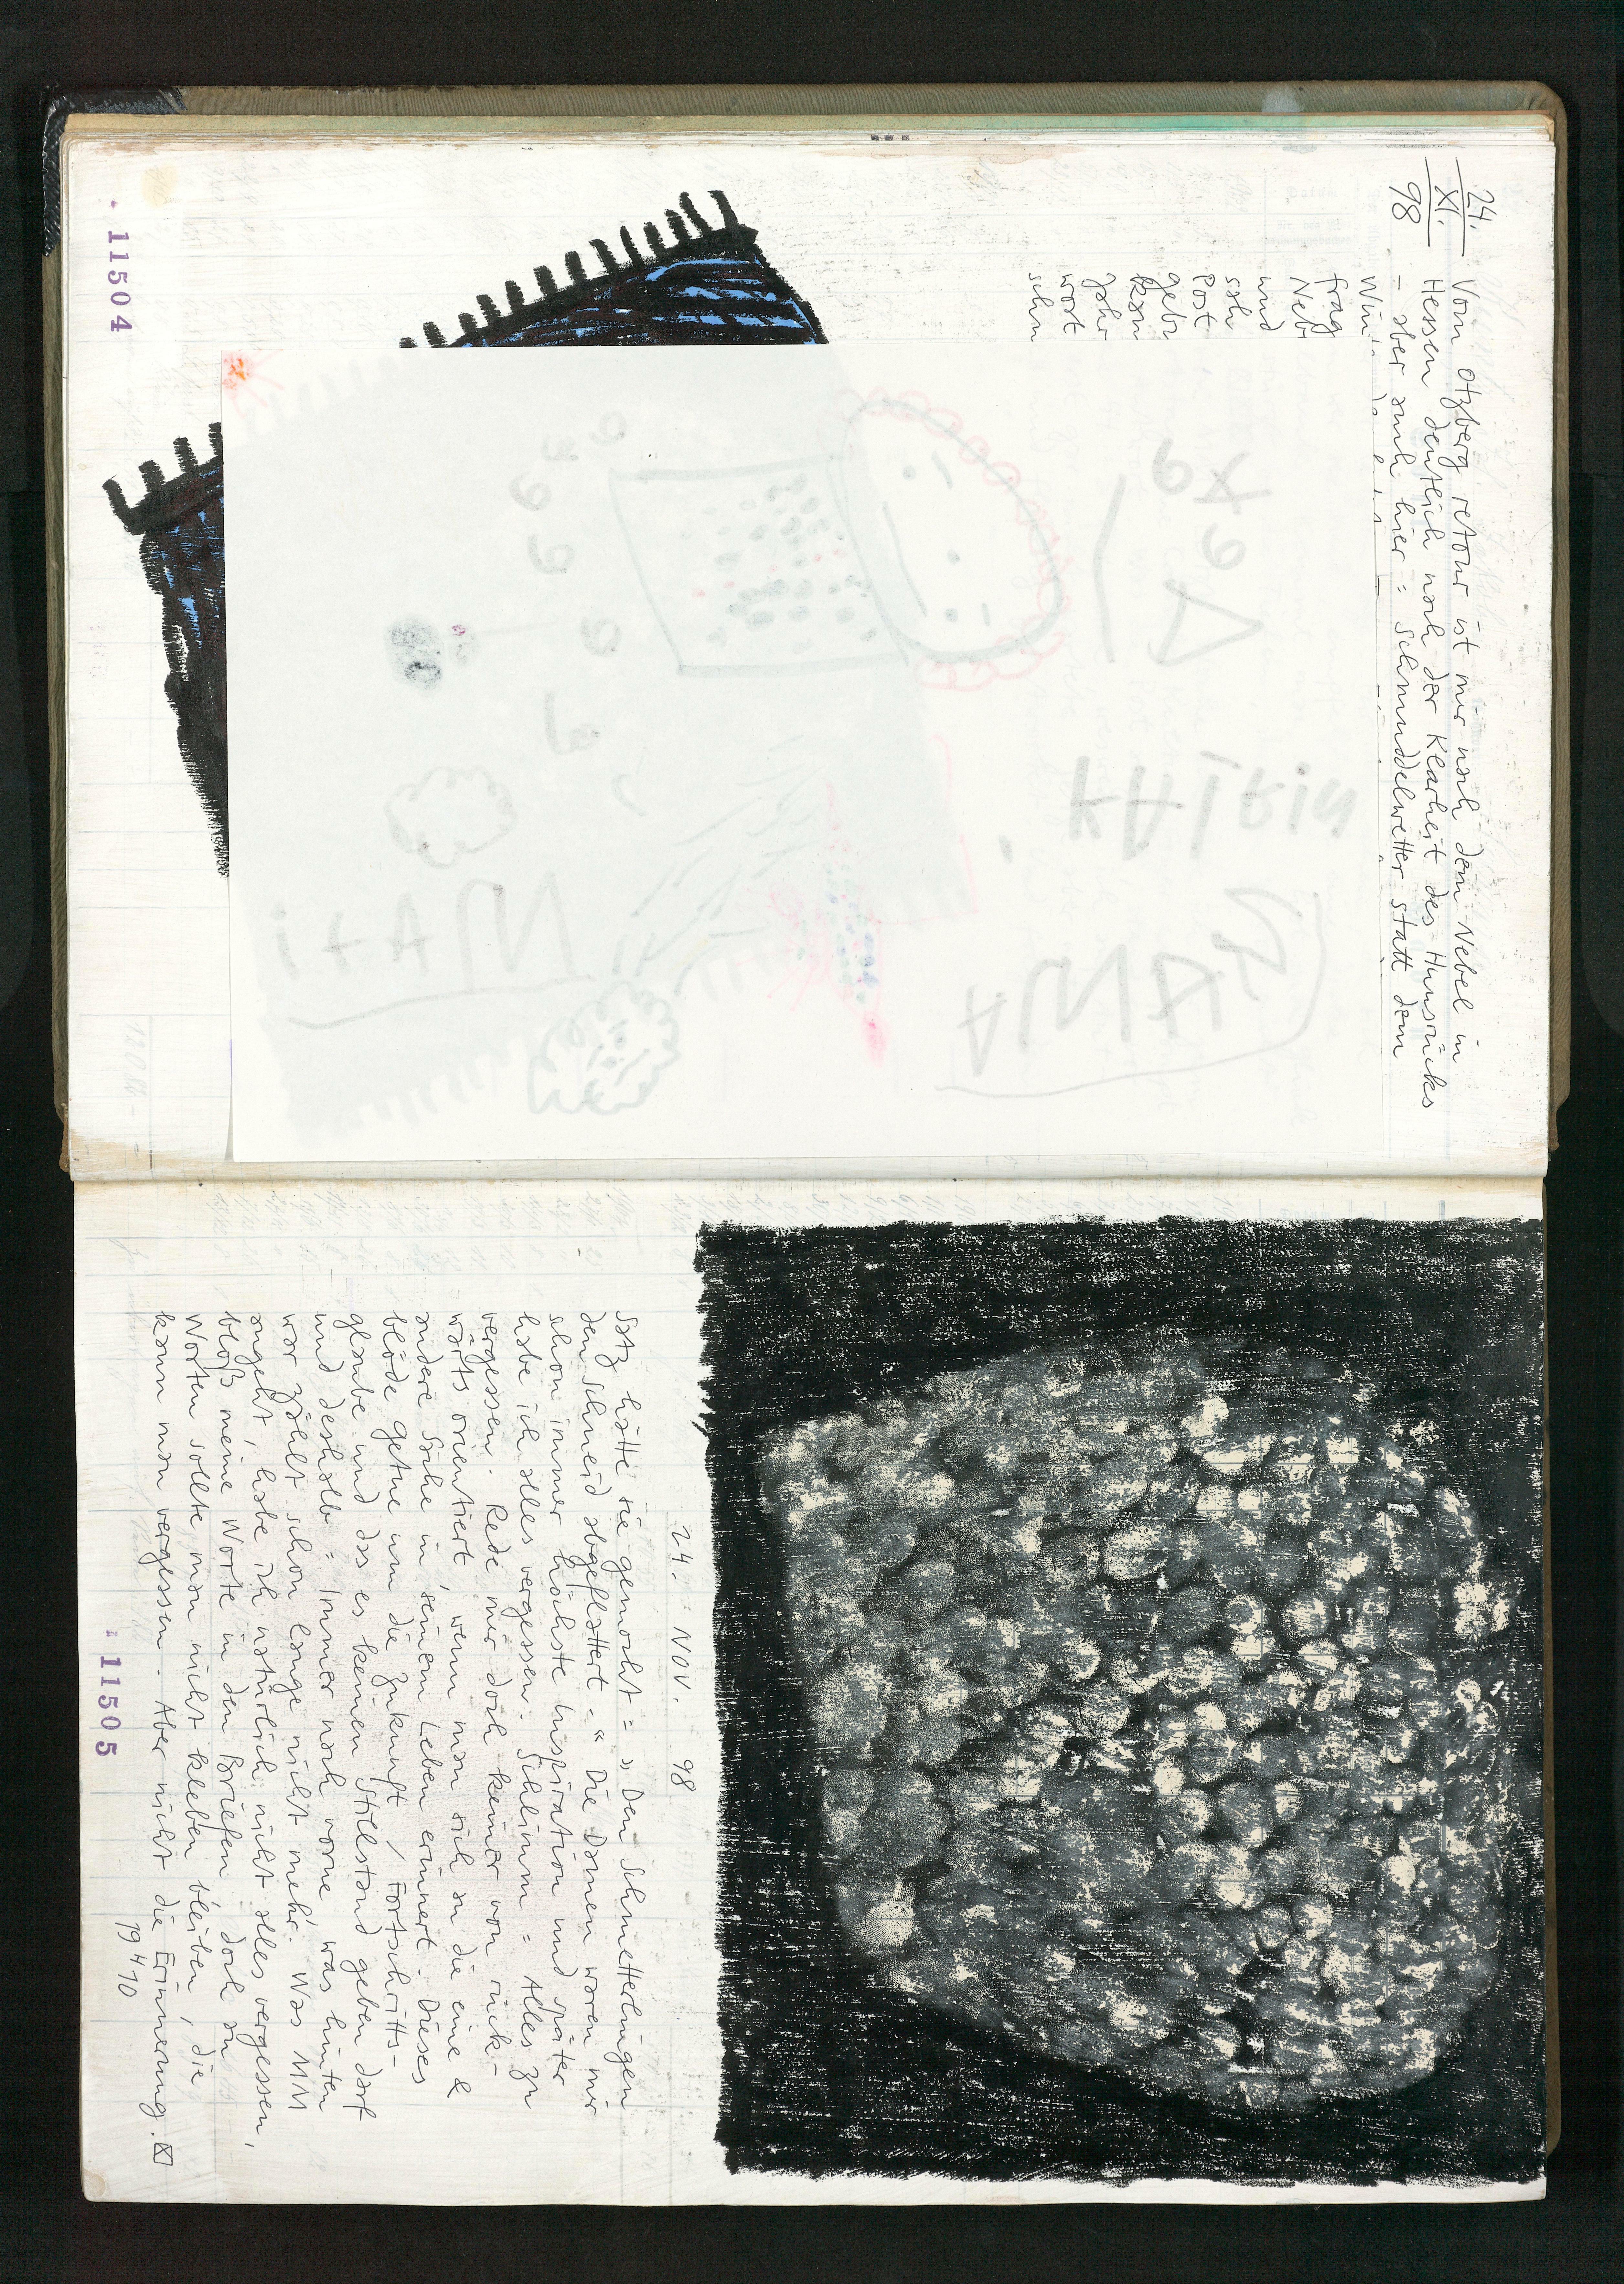 24.
XI.
98
Vom Otzberg retour ist mir nach dem Nebel in
Hessen deutlich nach der Klarheit des Hunsrücks
- aber auch hier: Schmuddelwetter statt dem
Win
frag
Neb
und
sah
Post
gebr
kam
Jahr
wort
schn
KATRIN
ANNA
MAti
11504
24. NOV. 98
Satz hätte sie gemocht: »Den Schmetterlingen
den Schneid abgeflattert.“ Die Damen waren mir
schon immer höchste Inspiration und später
habe ich alles vergessen. Schlimm: Alles zu
vergessen. Rede mir doch keiner von rück-
wärts orientiert, wenn man sich an die eine &
andere Sache in seinem Leben erinnert. Dieses
blöde Getue um die Zukunft / Fortschritts-
glaube und das es keinen Stillstand geben darf
und deshalb: Immer nach vorne, was hinten
war zählt schon lange nicht mehr. Was MM
angeht, habe ich natürlich nicht alles vergessen,
bloß meine Worte in den Briefen doch an
Worten sollte man nicht kleben bleiben, die
kann man vergessen. Aber nicht die Erinnerung.
19 4 10
11505